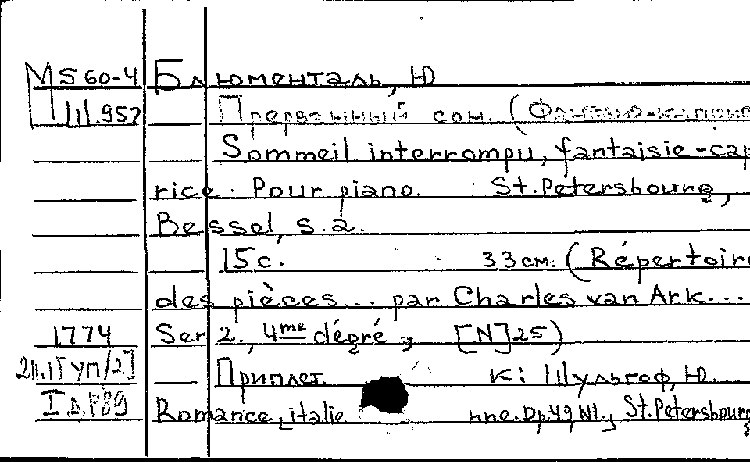 М 560-4 Блюменталь, Ю
Ш.957 Прерванный сон. (Фантазия-каприс
Sommeil interrompu, fantaisie-cap
rice. Pour piano. St.Petersbourg,
Bessel, s.a.
15c. 33см. (Répertoire
des pièces... par Charles van Ark...
1774 Ser 2., 4me dégré, [N]25)
Приплет. к: Шульгоф, Ю.
Romance, italie nne. Op.49 N1., St.Petersbourg